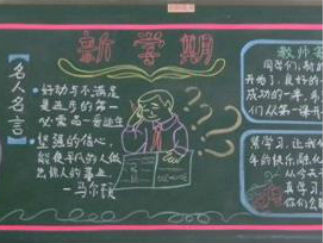 新学期
名人名言
·好动与不满足
是进步的第一
必需品—爱迪生
·坚强的信心,
能使平凡的人做
出惊人的事业
—马尔顿
???
教师寄
同学们,新的
开始了,良好的
成功的一半,
们从第一课开
紧学习,让我
年的快乐融化
从今天
真学习,
你们会